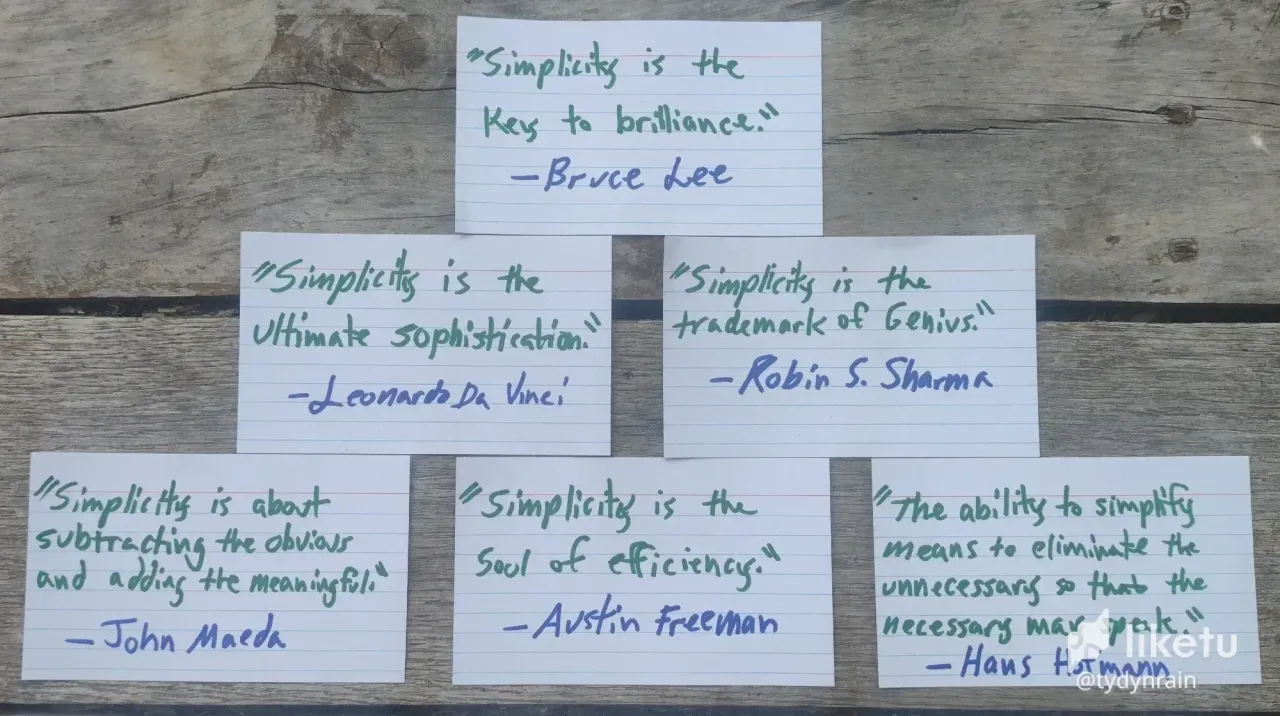 "Simplicity is the
Key to brilliance."
—Bruce Lee
"Simplicity is the
ultimate sophistication."
—Leonardo Da Vinci
"Simplicity is the
trademark of Genius."
—Robin S. Sharma
"Simplicity is about
subtracting the obvious
and adding the meaningful."
—John Maeda
"Simplicity is the
Soul of efficiency."
—Austin Freeman
"The ability to simplify
means to eliminate the
unnecessary so that the
necessary may speak."
—Hans Hofmann
liketu
@tydynrain